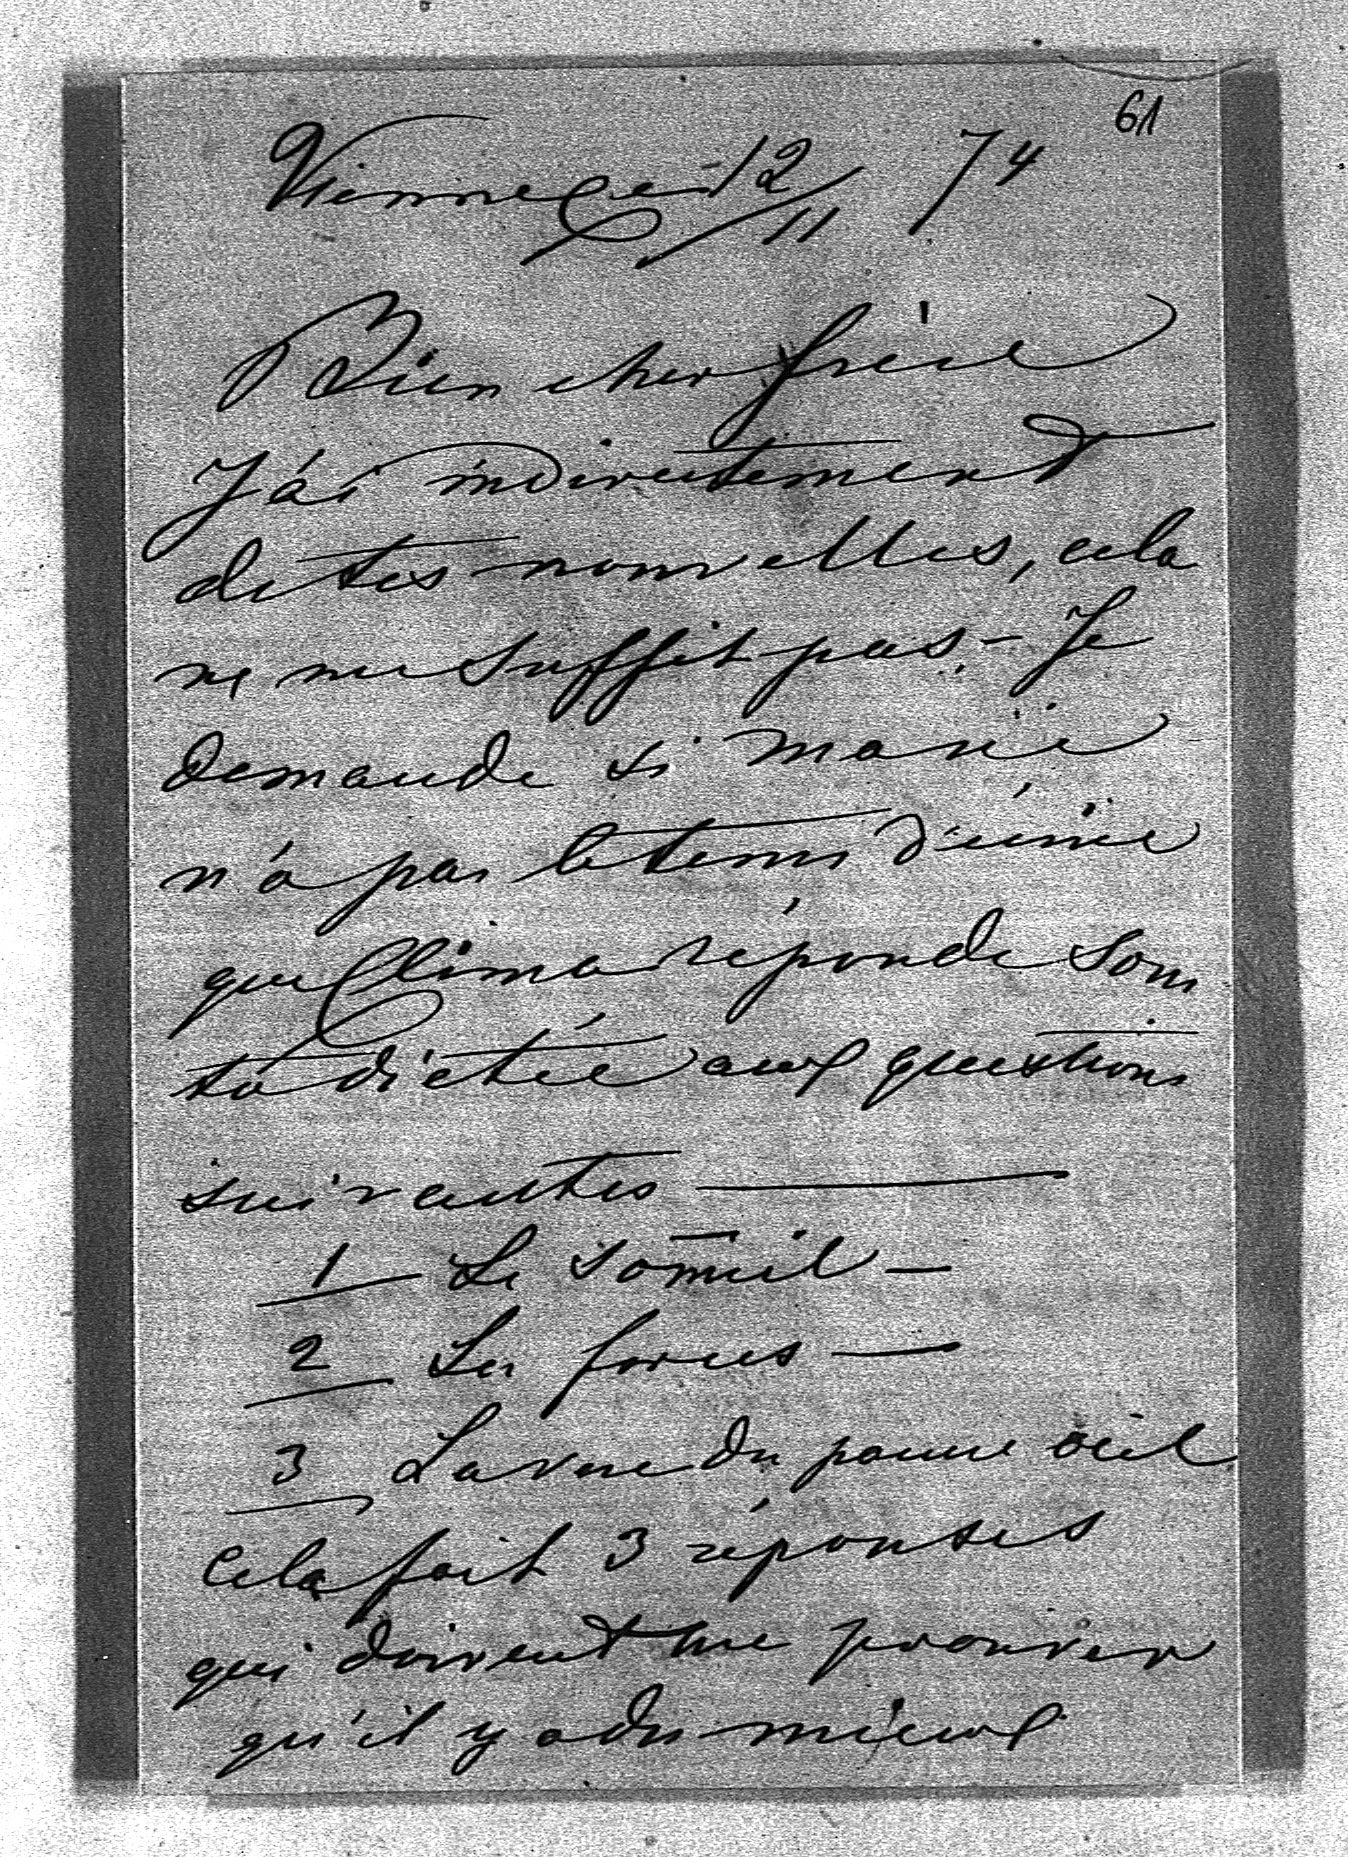 61
Vienne ce 12/11 74
Bien cher frère
J'ai indirectement
de tes nouvelles, cela
ne me suffit pas. – Je
demande si Marie
n'a pas le tems d'écrire
que Clima réponde sous
ta dictée aux questions
suivantes —
1 Le som̄eil –
2 Les forces —
3 La vue du pauvre œil
Cela fait 3 réponses
qui doivent me prouver
qu'il y a du mieux